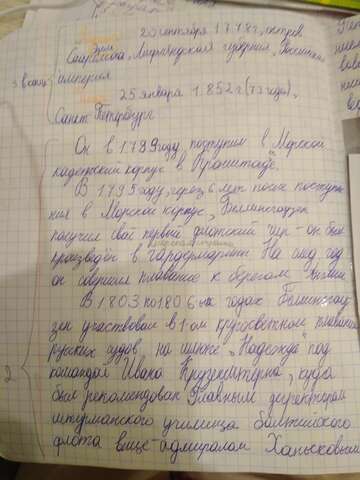 20 сентября 1778г, остров
Сааремаа, Лифляндская губерния, Российская
империя
25 января 1852г (73 года),
Санкт-Петербург
Он в 1789 году, поступил в Морской
кадетский корпус в Кронштадте.
В 1795 году, через 6 лет после поступле
ния в Морской корпус, Беллинсгаузен
получил свой первый флотский чин - он был
произведён в гардемарины. На след. год
он совершил плавание к берегам Англии.
В 1803 по 1806-ых годах Беллинсгау
зен участвовал в 1-ом кругосветном плавании
русских судов на шлюпе "Надежда" под
командой Ивана Крузенштерна, куда
был рекомендован Главным директором
штурманского училища балтийского
флота вице-адмиралом Ханыковым
2